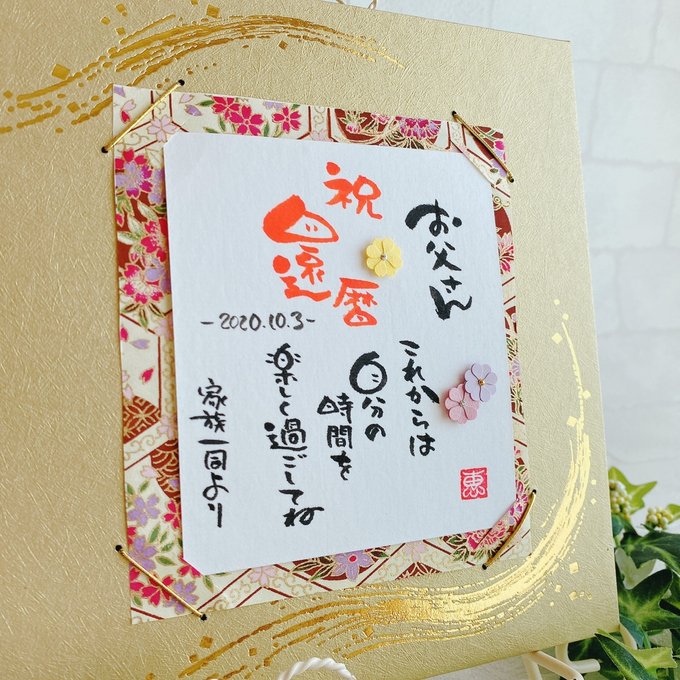 お父さん
祝
還暦
-2020.10.3-
これからは
自分の
時間を
楽しく過ごしてね
家族一同より
恵